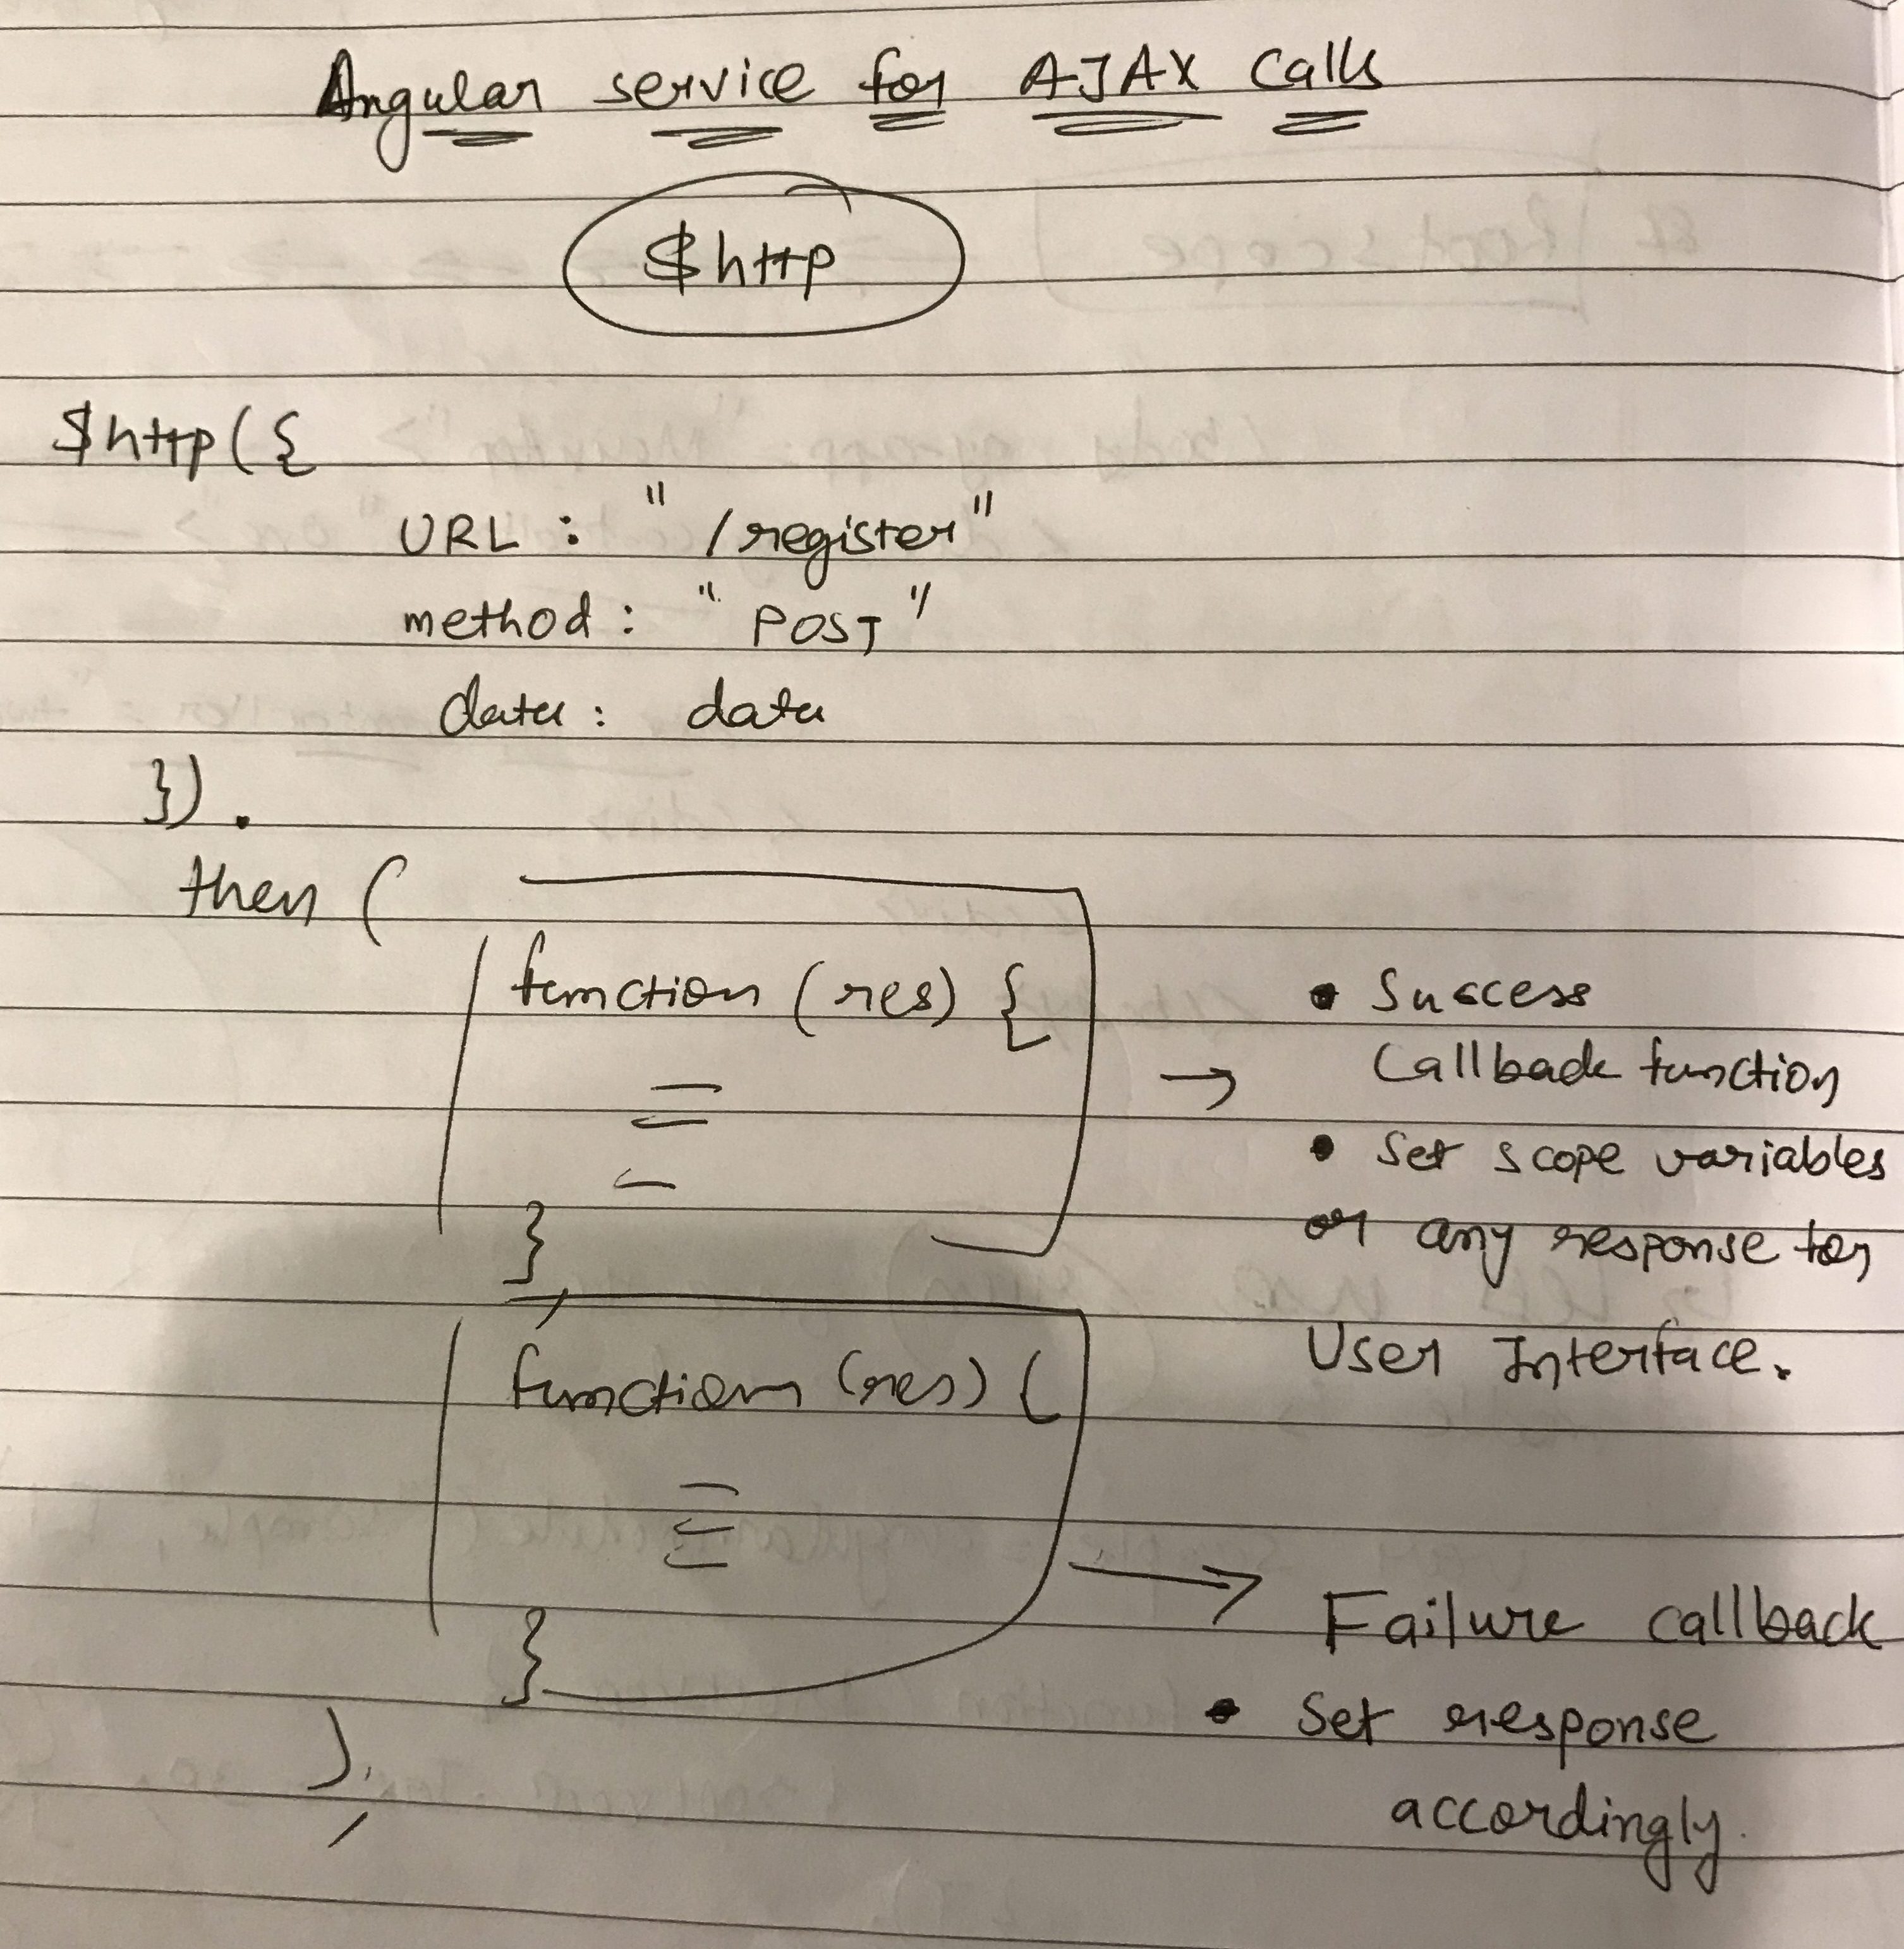 Angular service for AJAX Calls
$http
$http({
URL : "/register"
method : "POST"
data : data
}).
then (
function (res) {
}
,
function (res) {
}
);
→ • Success
Callback function
• Set scope variables
or any response for
User Interface.
→ Failure callback
• Set response
accordingly.